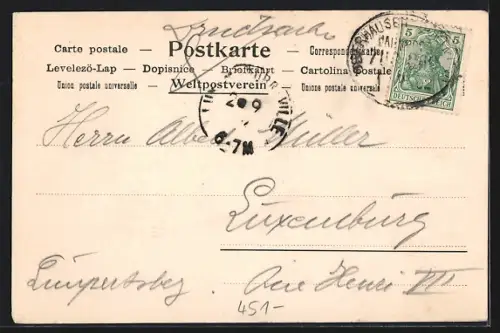 Drucksache
Carte postale — Postkarte — Correspondenzkarte
Levelező-Lap — Dopisnice — Briefkaart — Cartolina Postale
Union postale universelle — Weltpostverein — Unione postale universale
5 5
DEUTSCHES REICH
OBERHAUSEN
VILLE
20 9
6-7M
Herrn Albert Müller
Luxemburg
Limpertsberg. Ave Henri VII
451-